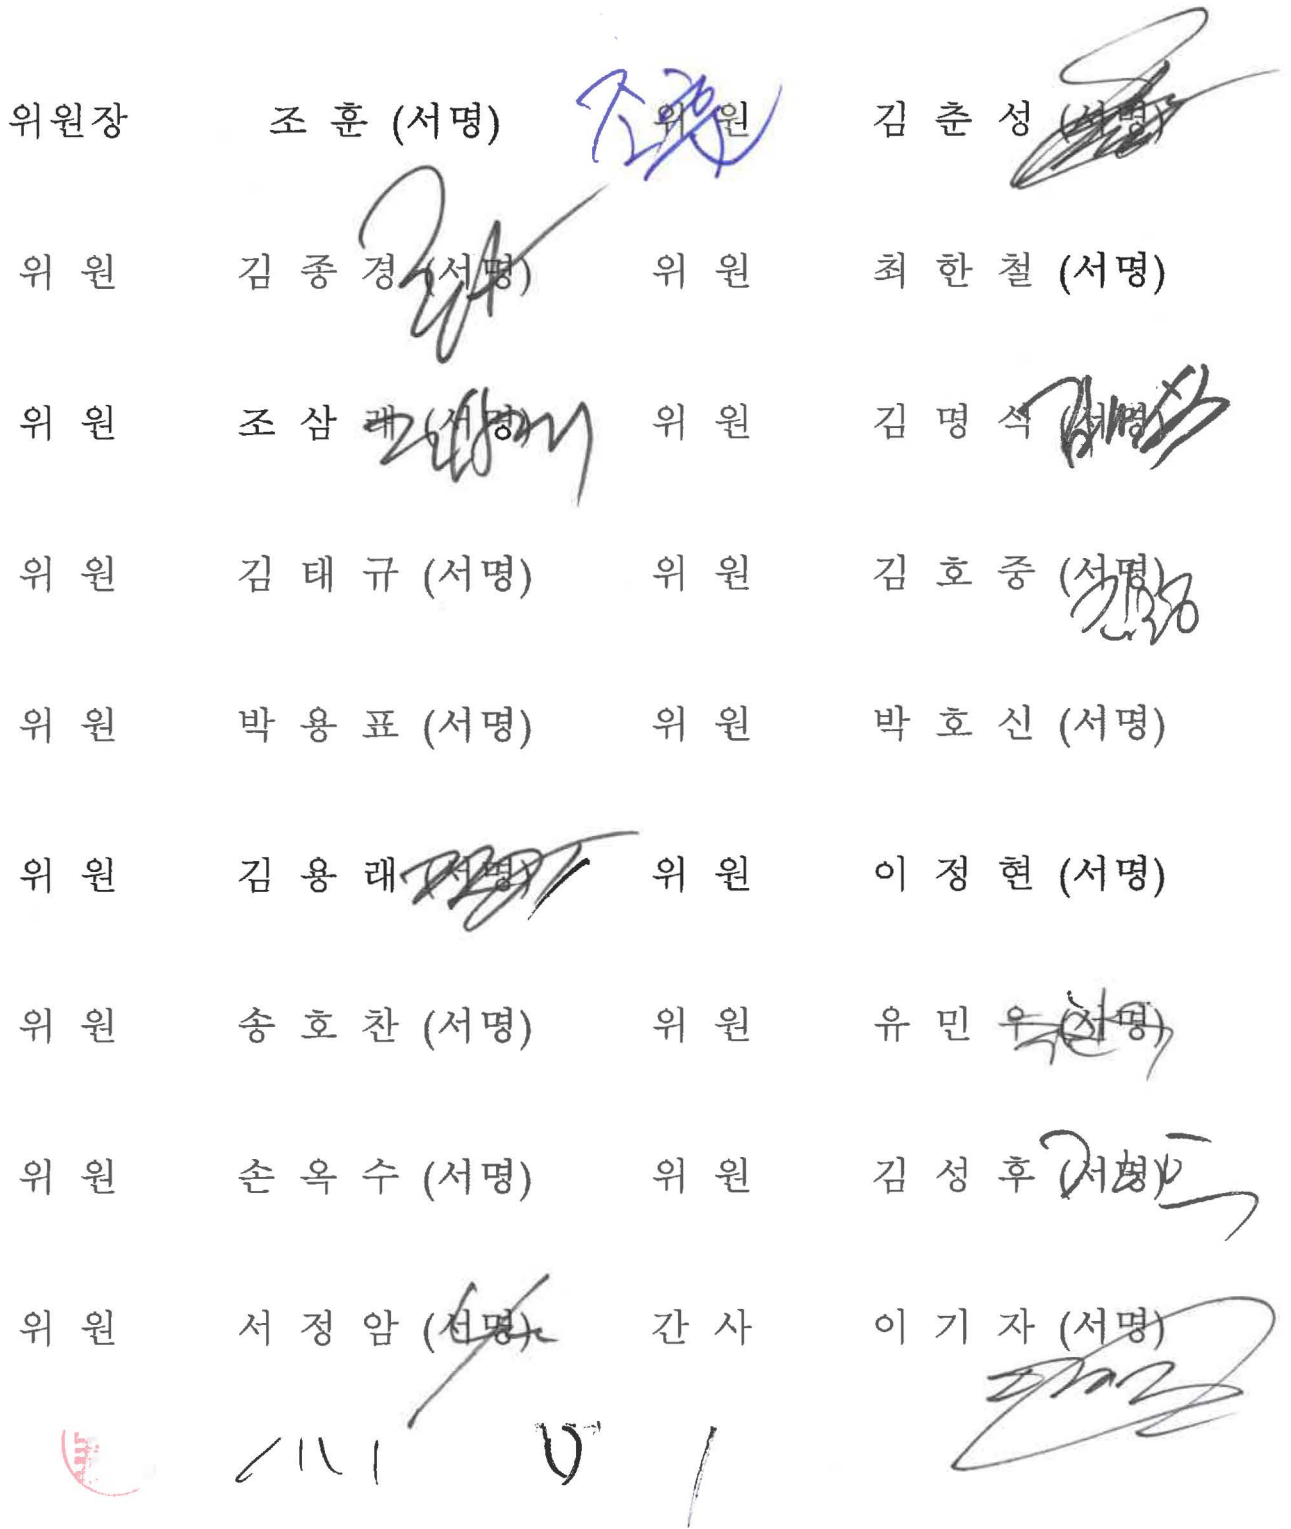 위원장 조 훈 (서명) 조훈 위 원 김 춘 성 (서명)
위 원 김 종 경 (서명) 위 원 최 한 철 (서명)
위 원 조 삼 래 (서명) 위 원 김 명 석 (서명)
위 원 김 태 규 (서명) 위 원 김 호 중 (서명)
위 원 박 용 표 (서명) 위 원 박 호 신 (서명)
위 원 김 용 래 (서명) 위 원 이 정 현 (서명)
위 원 송 호 찬 (서명) 위 원 유 민 우 (서명)
위 원 손 옥 수 (서명) 위 원 김 성 후 (서명)
위 원 서 정 암 (서명) 간 사 이 기 자 (서명)